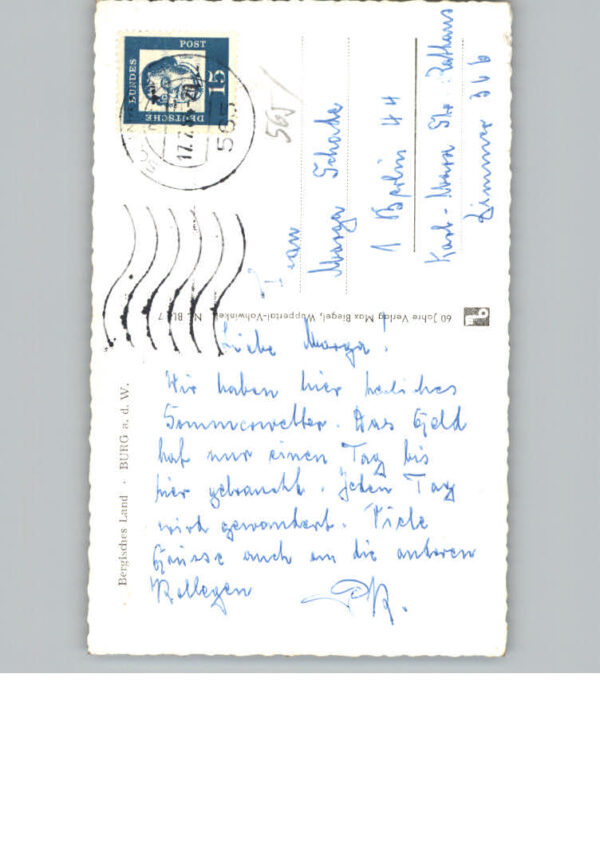 Liebe Marga!
Wir haben hier herliches
Sommerwetter. Das Geld
hat nur einen Tag bis
hier gebraucht. Jeden Tag
wird gewandert. Viele
Grüsse auch an die anderen
Kollegen
Marga Schade
1 Berlin 44
Karl-Marx Str. Rathaus
Zimmer 366
DEUTSCHE
BUNDES
POST
15
17.7.
565
565
60 Jahre Verlag Max Biegel, Wuppertal-Vohwinkel
Bergisches Land · BURG a. d. W.